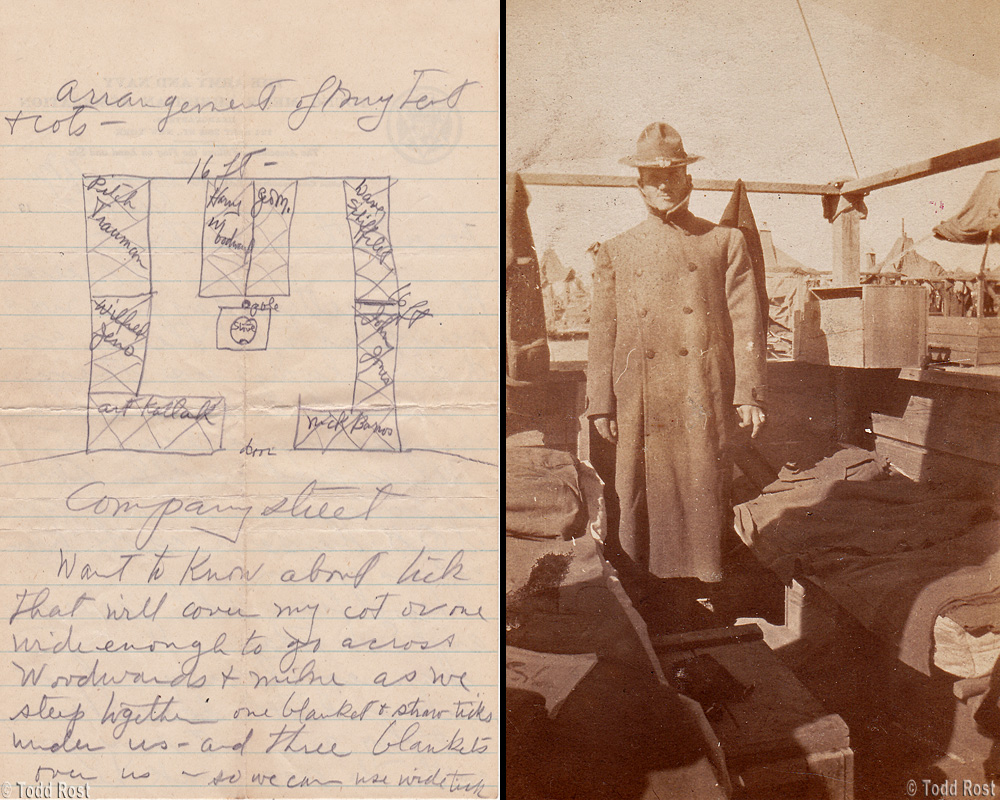 Arrangement of my Tent
& cots —
16 ft —
Harry Geo M.
Woodward
Dave
Trauman
16 ft
Wilfred
John
pole
Stove
Art
Nick
door
Company street
Want to know about tick
that will cover my cot or one
wide enough to go across
Woodwards & mine as we
sleep together one blanket & straw ticks
under us — and three blankets
over us — so we can use wide tick
© Todd Rost
© Todd Rost